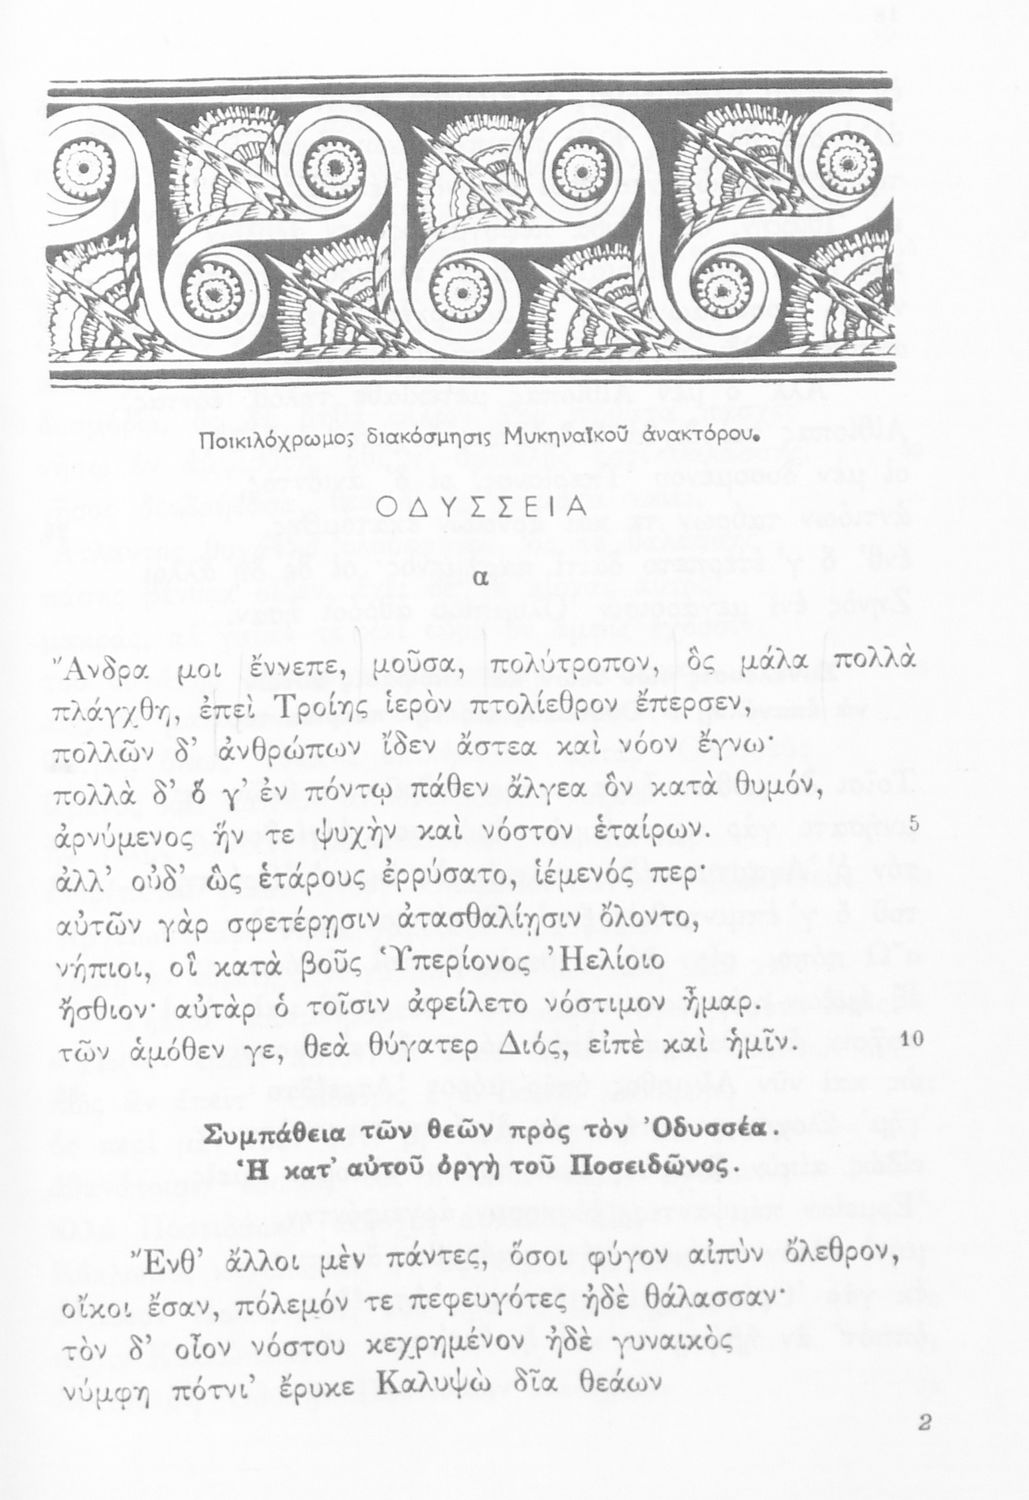 Ποικιλόχρωμος διακόσμησις Μυκηναϊκοῦ ἀνακτόρου.
ΟΔΥΣΣΕΙΑ
α
Ἄνδρα μοι ἔννεπε, μοῦσα, πολύτροπον, ὃς μάλα πολλὰ
πλάγχθη, ἐπεὶ Τροίης ἱερὸν πτολίεθρον ἔπερσεν,
πολλῶν δ’ ἀνθρώπων ἴδεν ἄστεα καὶ νόον ἔγνω·
πολλὰ δ’ ὅ γ’ ἐν πόντῳ πάθεν ἄλγεα ὃν κατὰ θυμόν,
ἀρνύμενος ἥν τε ψυχὴν καὶ νόστον ἑταίρων. 5
ἀλλ’ οὐδ’ ὣς ἑτάρους ἐρρύσατο, ἱέμενός περ·
αὐτῶν γὰρ σφετέρῃσιν ἀτασθαλίῃσιν ὄλοντο,
νήπιοι, οἳ κατὰ βοῦς Ὑπερίονος Ἠελίοιο
ἤσθιον· αὐτὰρ ὁ τοῖσιν ἀφείλετο νόστιμον ἦμαρ.
τῶν ἁμόθεν γε, θεὰ θύγατερ Διός, εἰπὲ καὶ ἡμῖν. 10
Συμπάθεια τῶν θεῶν πρὸς τὸν Ὀδυσσέα.
Ἡ κατ’ αὐτοῦ ὀργὴ τοῦ Ποσειδῶνος.
Ἔνθ’ ἄλλοι μὲν πάντες, ὅσοι φύγον αἰπὺν ὄλεθρον,
οἴκοι ἔσαν, πόλεμόν τε πεφευγότες ἠδὲ θάλασσαν·
τὸν δ’ οἶον νόστου κεχρημένον ἠδὲ γυναικὸς
νύμφη πότνι’ ἔρυκε Καλυψὼ δῖα θεάων
2